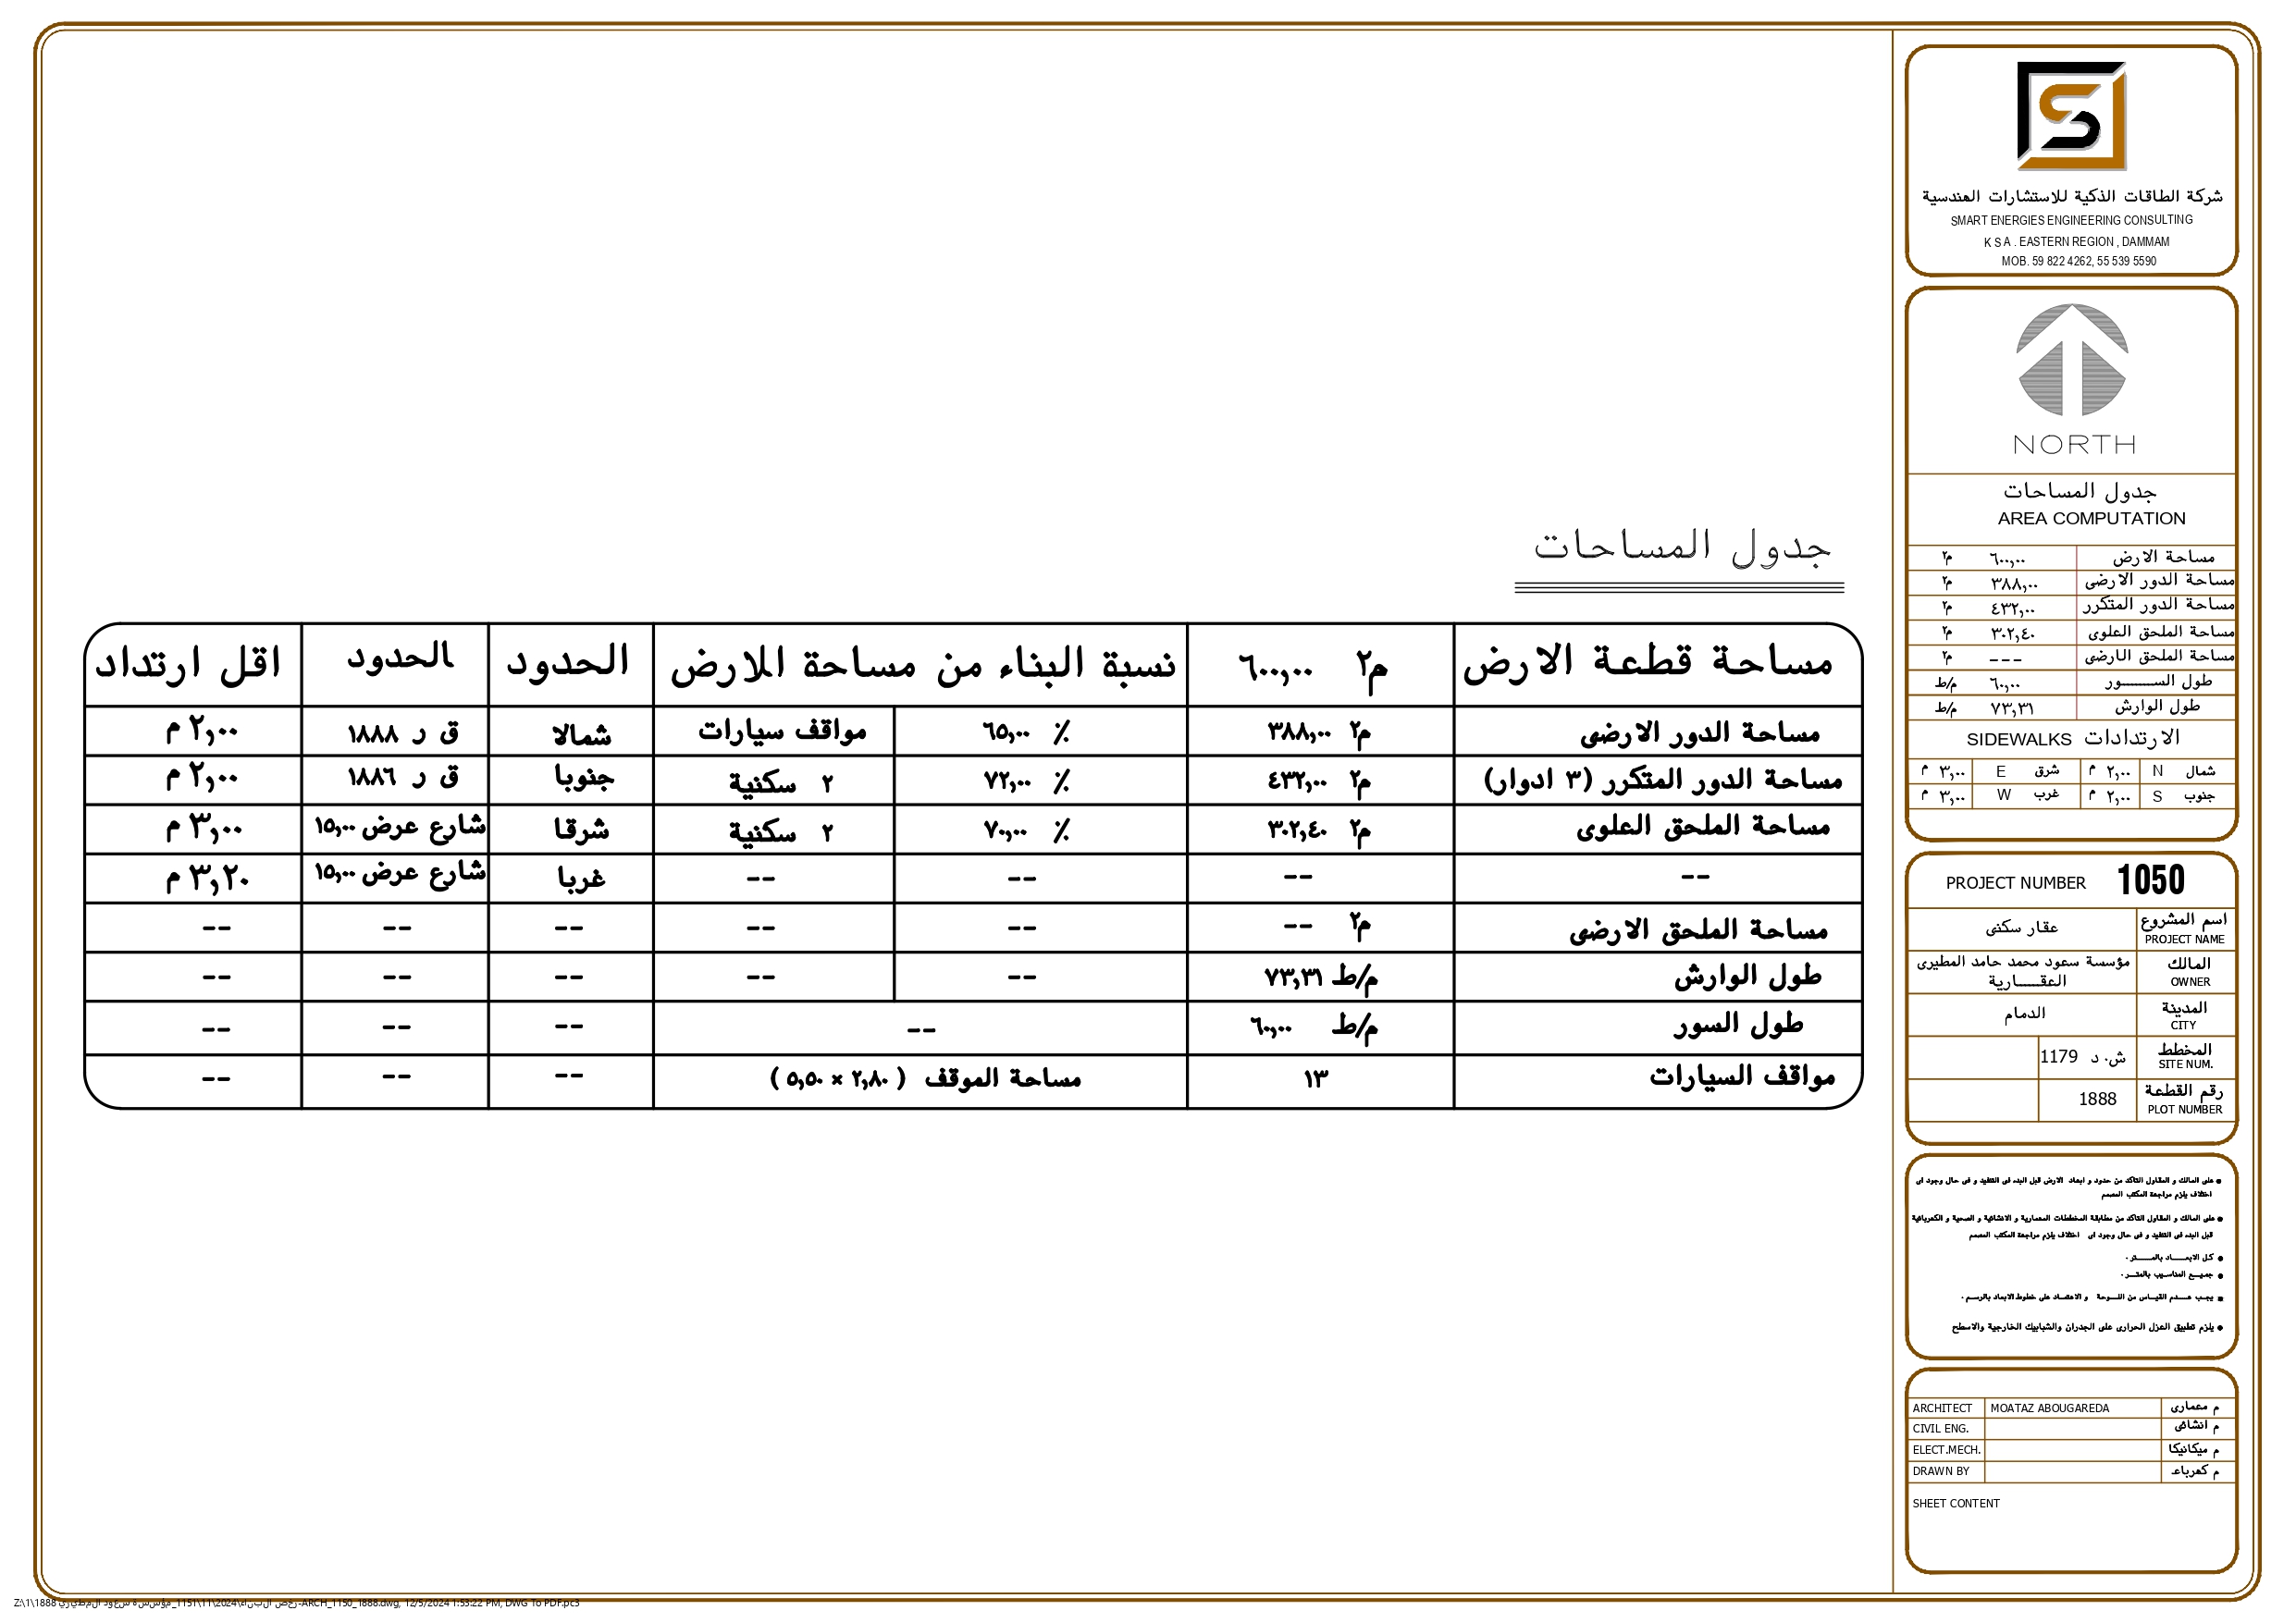 جدول المساحات
مساحة قطعة الارض ٦٠٠,٠٠ م٢ نسبة البناء من مساحة الارض الحدود الحدود اقل ارتداد
مساحة الدور الارضى ٣٨٨,٠٠ م٢ ٦٥,٠٠ ٪ مواقف سيارات شمالا ق ر ١٨٨٨ ٢,٠٠ م
مساحة الدور المتكرر (٣ ادوار) ٤٣٢,٠٠ م٢ ٧٢,٠٠ ٪ ٢ سكنية جنوبا ق ر ١٨٨٦ ٢,٠٠ م
مساحة الملحق العلوى ٣٠٢,٤٠ م٢ ٧٠,٠٠ ٪ ٢ سكنية شرقا شارع عرض ١٥,٠٠ ٣,٠٠ م
-- -- -- -- غربا شارع عرض ١٥,٠٠ ٣,٢٠ م
مساحة الملحق الارضى -- م٢ -- -- -- -- --
طول الوارش ٧٣,٣١ م/ط -- -- -- -- --
طول السور ٦٠,٠٠ م/ط -- -- -- --
مواقف السيارات ١٣ مساحة الموقف ( ٢,٨٠ × ٥,٥٠ ) -- -- --
شركة الطاقات الذكية للاستشارات الهندسية
SMART ENERGIES ENGINEERING CONSULTING
K S A . EASTERN REGION , DAMMAM
MOB. 59 822 4262, 55 539 5590
NORTH
جدول المساحات
AREA COMPUTATION
مساحة الارض ٦٠٠,٠٠ م٢
مساحة الدور الارضى ٣٨٨,٠٠ م٢
مساحة الدور المتكرر ٤٣٢,٠٠ م٢
مساحة الملحق العلوى ٣٠٢,٤٠ م٢
مساحة الملحق الارضى --- م٢
طول الســـــور ٦٠,٠٠ م/ط
طول الوارش ٧٣,٣١ م/ط
الارتدادات SIDEWALKS
شمال N ٢,٠٠ م شرق E ٣,٠٠ م
جنوب S ٢,٠٠ م غرب W ٣,٠٠ م
PROJECT NUMBER 1050
اسم المشروع عقار سكنى
PROJECT NAME
المالك مؤسسة سعود محمد حامد المطيرى
OWNER العقــــارية
المدينة الدمام
CITY
المخطط ش. د 1179
SITE NUM.
رقم القطعة 1888
PLOT NUMBER
● على المالك و المقاول التاكد من حدود و ابعاد الارض قبل البدء فى التنفيذ و فى حال وجود اى
اختلاف يلزم مراجعة المكتب المصمم
● على المالك و المقاول التاكد من مطابقة المخططات المعمارية و الانشائية و الصحية و الكهربائية
قبل البدء فى التنفيذ و فى حال وجود اى اختلاف يلزم مراجعة المكتب المصمم
● كل الابعـــاد بالمـــتر .
● جميـــع المناسيب بالمتـــر .
■ يجب عـــدم القيـــاس من اللـــوحة و الاعتمـــاد على خطوط الابعاد بالرســم .
● يلزم تطبيق العزل الحرارى على الجدران والشبابيك الخارجية والاسطح
ARCHITECT MOATAZ ABOUGAREDA م معمارى
CIVIL ENG. م انشائى
ELECT.MECH. م ميكانيكا
DRAWN BY م كهرباء
SHEET CONTENT